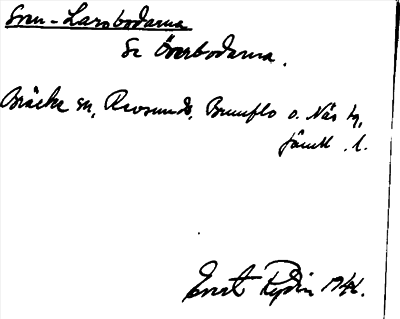 Sven-Larsbodarna
Se Överbodarna.
Bräcke sn, Revsunds, Brunflo o. Näs tg,
Jämtl. l.
Evert Rydin 1946.